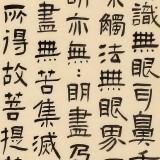 識無眼耳鼻
觸法無眼界
明亦無:明盡乃
盡無苦集滅
所得故菩提